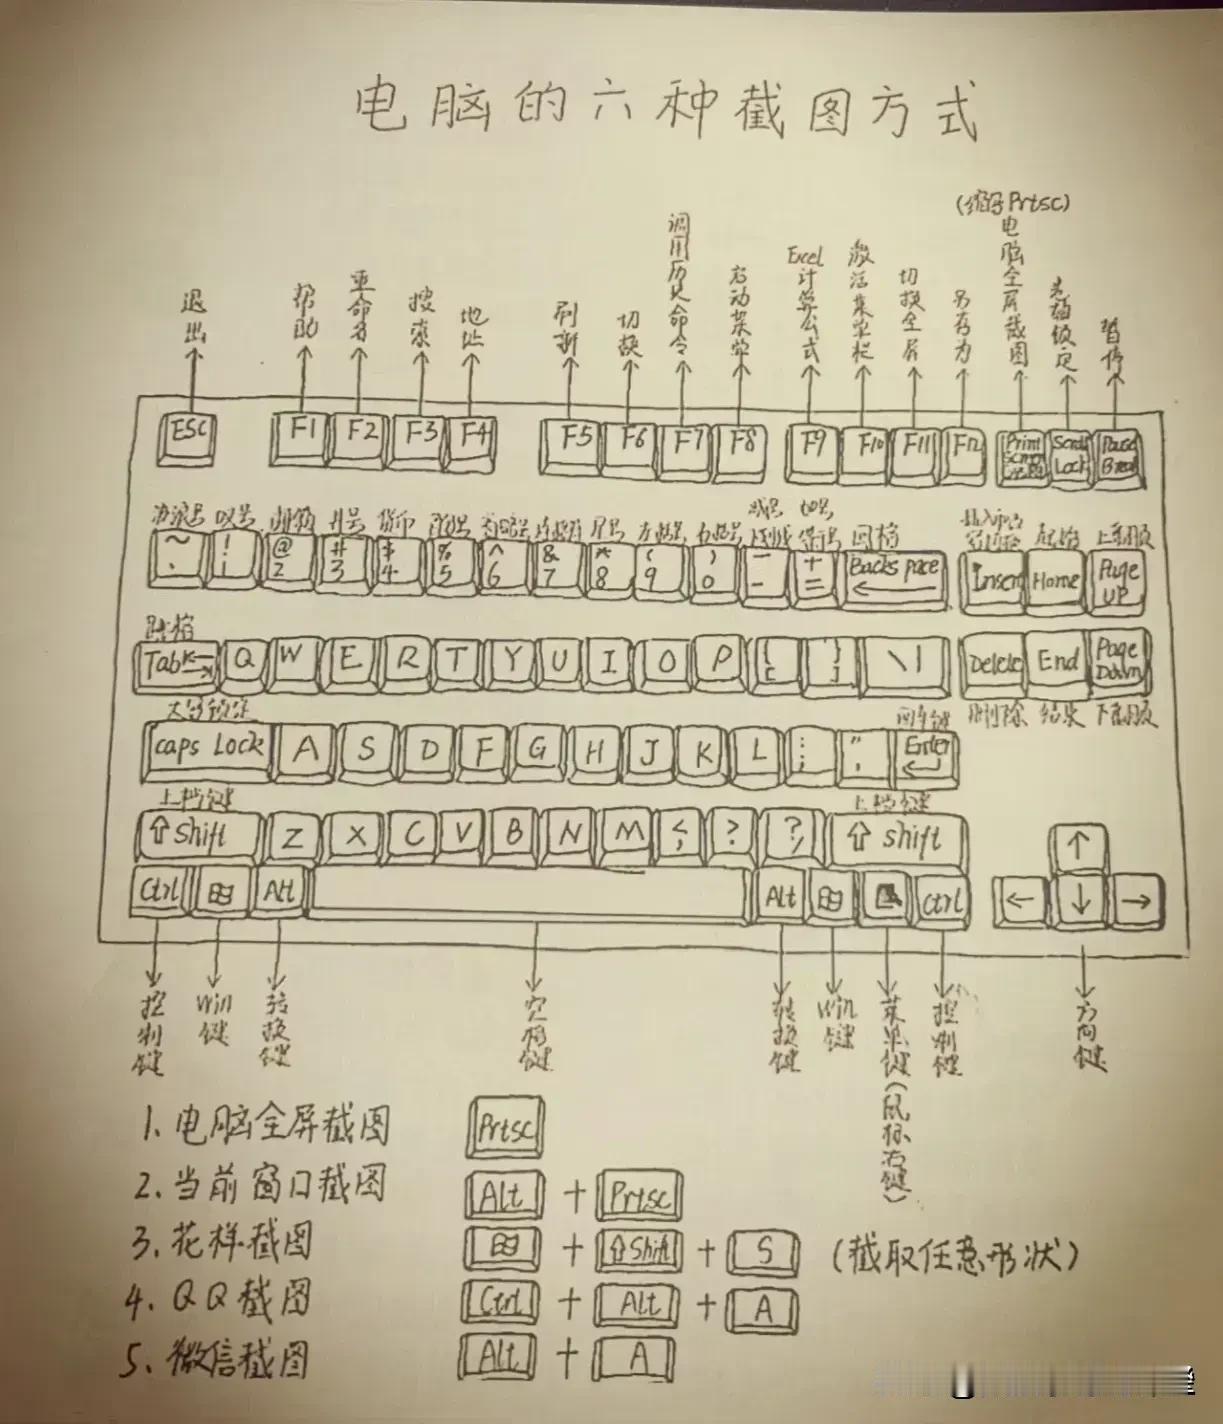 电脑的六种截图方式
(缩写Prtsc)
退出
帮助
重命名
搜索
地址
刷新
切换
调用历史命令
启动菜单
Excel计算公式
激活菜单栏
切换全屏
另存为
电脑全屏截图
暂停
ESC F1 F2 F3 F4 F5 F6 F7 F8 F9 F10 F11 F12 Print Screen Scroll Lock Pause Break
波浪号 叹号 井号 货币 省略号 连接符 星号 左括号 右括号 减号 加号 等号 回格 起始 上翻页
~ ! @ # $ % ^ & * ( ) — + Backspace Insert Home Page UP
· 1 2 3 4 5 6 7 8 9 0 - =
跳格
Tab Q W E R T Y U I O P { [ } ] \ | Delete End Page Down
大写锁定 回车键 删除 结束 下翻页
caps Lock A S D F G H J K L : ; " ' Enter
上档键 上档键
shift Z X C V B N M < , > ? / shift
Ctrl Alt Alt Ctrl
↑
← ↓ →
控制键
Win键
转换键
空格键
转换键
Win键
菜单键(鼠标右键)
控制键
方向键
1. 电脑全屏截图 Prtsc
2. 当前窗口截图 Alt + Prtsc
3. 花样截图 + Shift + S (截取任意形状)
4. QQ截图 Ctrl + Alt + A
5. 微信截图 Alt + A